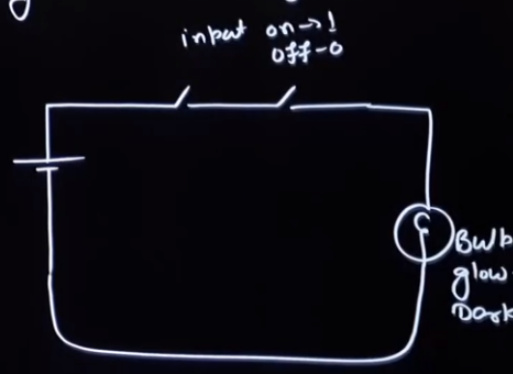 input on→1
off-0
Bulb
glow-
Dark